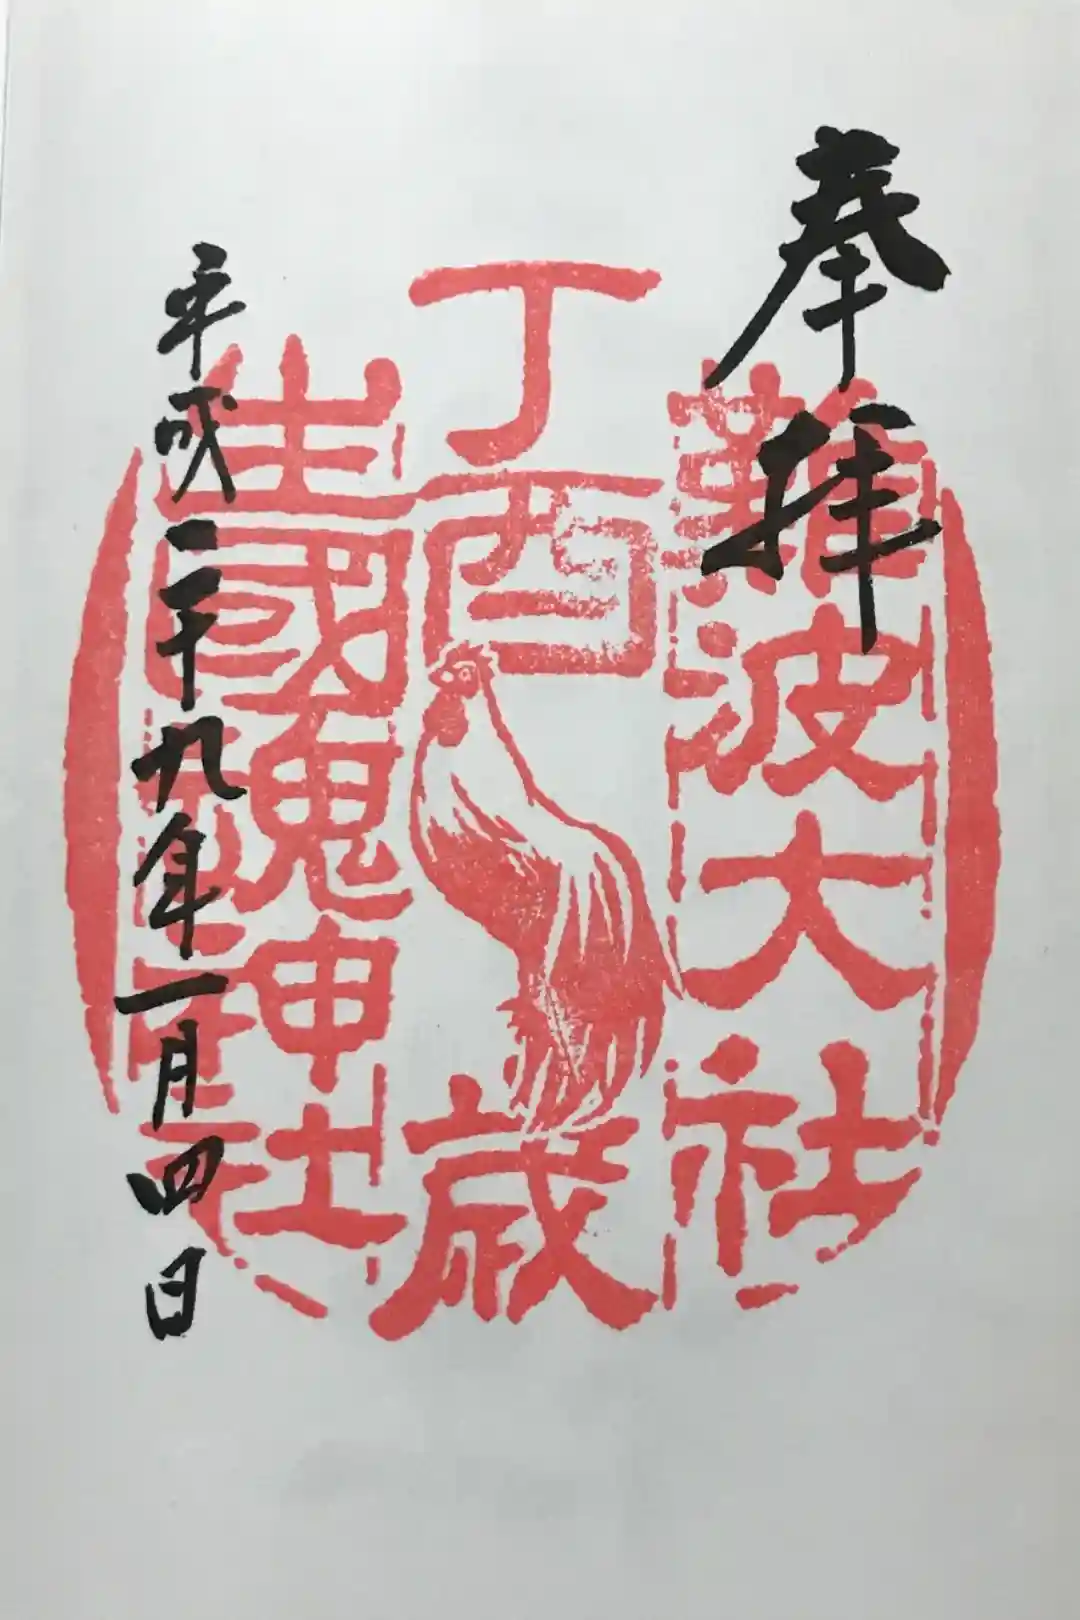 奉拝
難波大社
丁酉歳
生國魂神社
平成二十九年一月四日